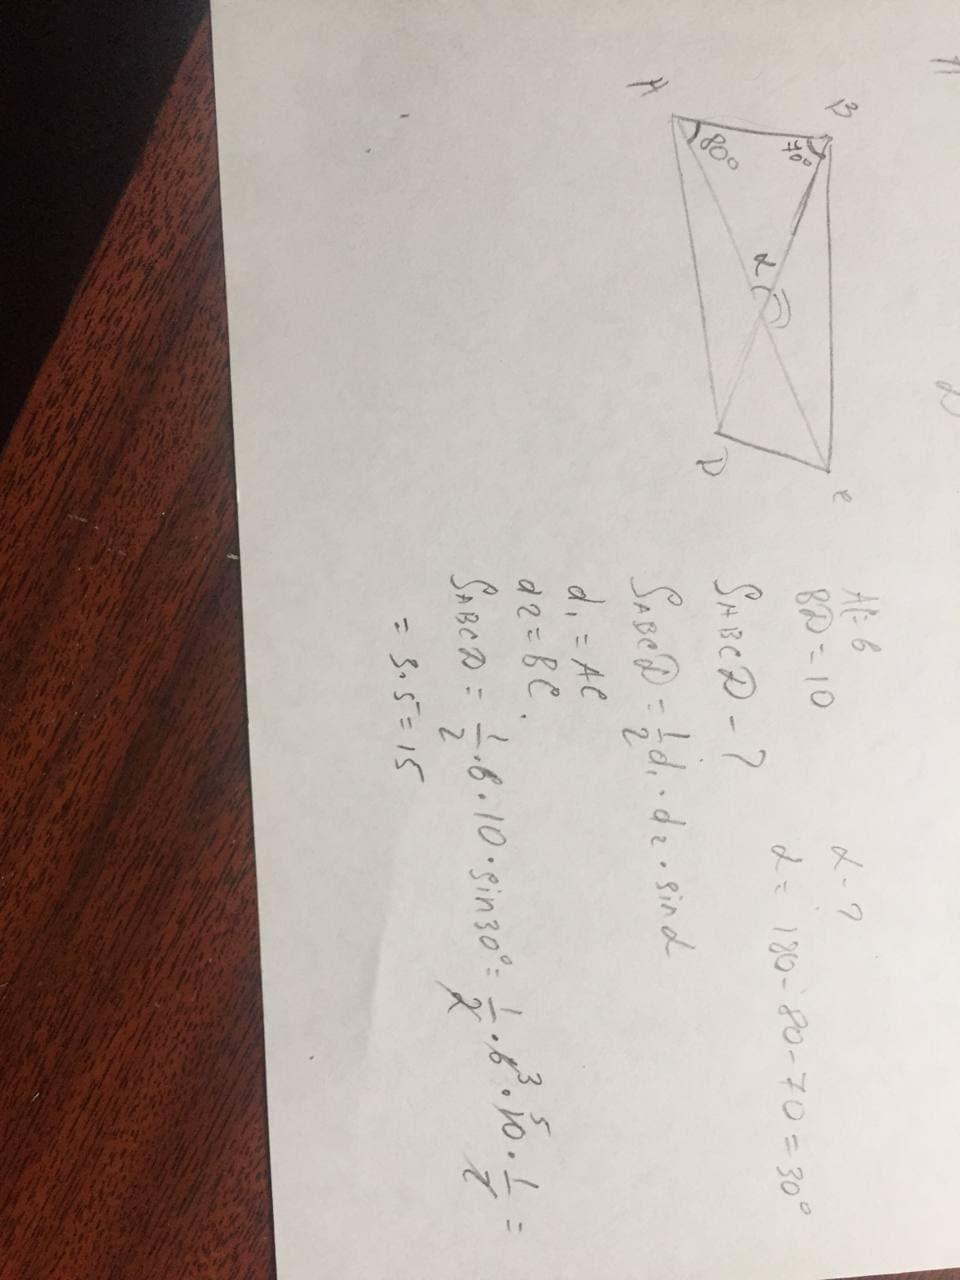 A
B
80°
70°
α
D
C
AC=6
BD=10
α-?
α = 180-80-70=30°
SABCD-?
SABCD = 1/2 d1 · d2 · sinα
d1 = AC
d2 = BC
SABCD = 1/2 · 6 · 10 · sin30° = 1/2 · 6 3 · 10 5 · 1/2 =
= 3·5=15